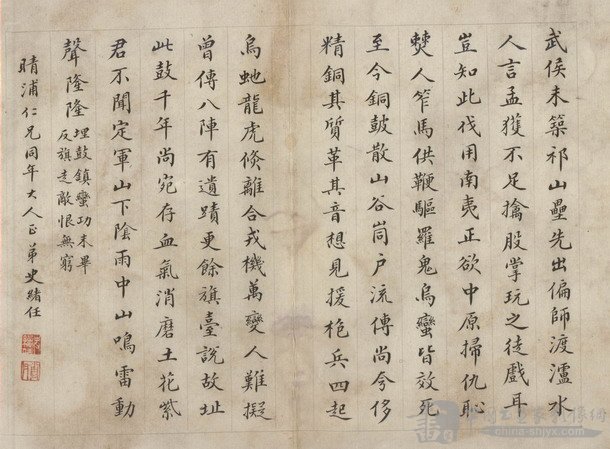 武侯未築祁山壘先出偏師渡瀘水
人言孟獲不足擒股掌玩之徒戲耳
豈知此伐用南夷正欲中原掃仇恥
僰人笮馬供鞭驅羅鬼烏蠻皆效死
至今銅鼓散山谷峝戶流傳尚今侈
精銅其質革其音想見援枹兵四起
烏虵龍虎倏離合戎機萬變人難擬
曾傳八陣有遺蹟更餘旗臺說故址
此鼓千年尚宛存血氣消磨土花紫
君不聞定軍山下陰雨中山鳴雷動
聲隆隆
埋鼓鎮蠻功未畢
反旗走敵恨無窮
晴浦仁兄同年大人正 弟史任
china-shjyx.com